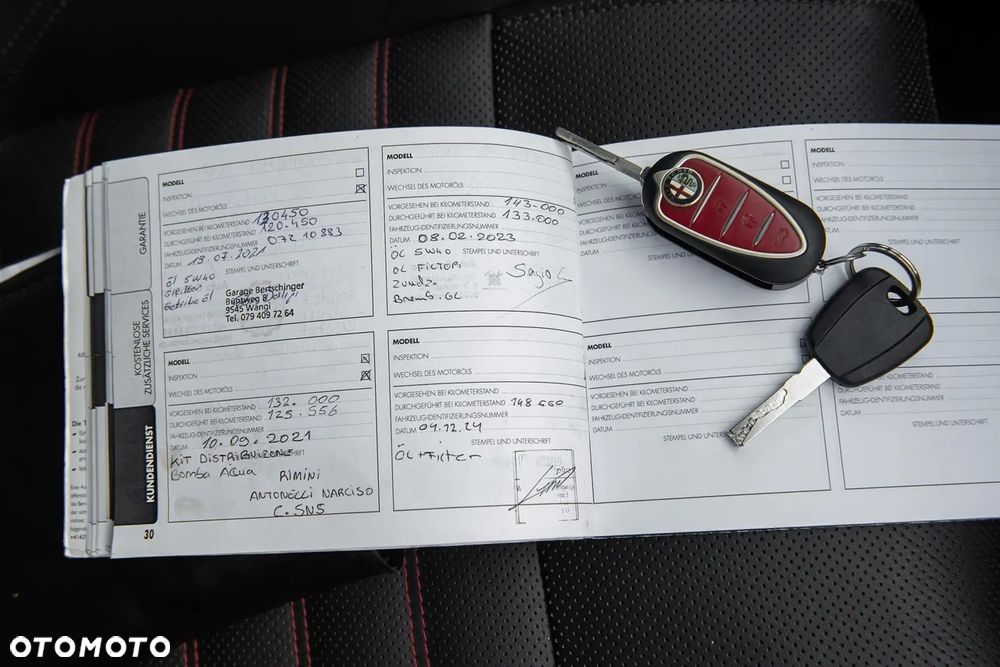 GARANTIE
KOSTENLOSE
ZUSÄTZLICHE SERVICES
KUNDENDIENST
30
MODELL
INSPEKTION
WECHSEL DES MOTORÖLS
VORGESEHEN BEI KILOMETERSTAND 130450
DURCHGEFÜHRT BEI KILOMETERSTAND 120.450
FAHRZEUG-IDENTIFIZIERUNGSNUMMER 072 10883
DATUM 19.07.2021
STEMPEL UND UNTERSCHRIFT
Öl 5W40
Getriebe öl
Garage Bertschinger
Büntweg 8
9545 Wängi
Tel. 079 409 72 64
MODELL
INSPEKTION
WECHSEL DES MOTORÖLS
VORGESEHEN BEI KILOMETERSTAND 132.000
DURCHGEFÜHRT BEI KILOMETERSTAND 125.556
FAHRZEUG-IDENTIFIZIERUNGSNUMMER
DATUM 10.09.2021
KIT DISTRIBUZIONE
Bomba AQUA RIMINI
ANTONELLI NARCISO
C. SNS
MODELL
INSPEKTION
WECHSEL DES MOTORÖLS
VORGESEHEN BEI KILOMETERSTAND 143-000
DURCHGEFÜHRT BEI KILOMETERSTAND 133.000
FAHRZEUG-IDENTIFIZIERUNGSNUMMER
DATUM 08.02.2023
ÖL 5W40 STEMPEL UND UNTERSCHRIFT
ÖL FICTER
Bremb. ÖL
MODELL
INSPEKTION
WECHSEL DES MOTORÖLS
VORGESEHEN BEI KILOMETERSTAND
DURCHGEFÜHRT BEI KILOMETERSTAND 148 550
FAHRZEUG-IDENTIFIZIERUNGSNUMMER
DATUM 04.12.24
STEMPEL UND UNTERSCHRIFT
ÖL + Filter
MODELL
INSPEKTION
WECHSEL DES MOTORÖLS
VORGESEHEN BEI KILOMETERSTAND
DURCHGEFÜHRT BEI KILOMETERSTAND
FAHRZEUG-IDENTIFIZIERUNGSNUMMER
DATUM
STEMPEL UND
MODELL
INSPEKTION
WECHSEL DES MOTORÖLS
VORGESEHEN BEI KILOMETERSTAND
DURCHGEFÜHRT BEI KILOMETERSTAND
FAHRZEUG-IDENTIFIZIERUNGSNUMMER
DATUM
STEMPEL UND
MODELL
INSPEKTION
WECHSEL DES MOTORÖLS
VORGESEHEN BEI KILOMETERSTAND
DURCHGEFÜHRT BEI KILOMETERSTAND
FAHRZEUG-IDENTIFIZIERUNGSNUMMER
DATUM
STEMPEL UND UNTERSCHRIFT
DURCHGEFÜHRT BEI KILOMETERSTAND
FAHRZEUG-IDENTIFIZIERUNGSNUMMER
DATUM
STEMPEL UND UNTERSCHRIFT
OTOMOTO